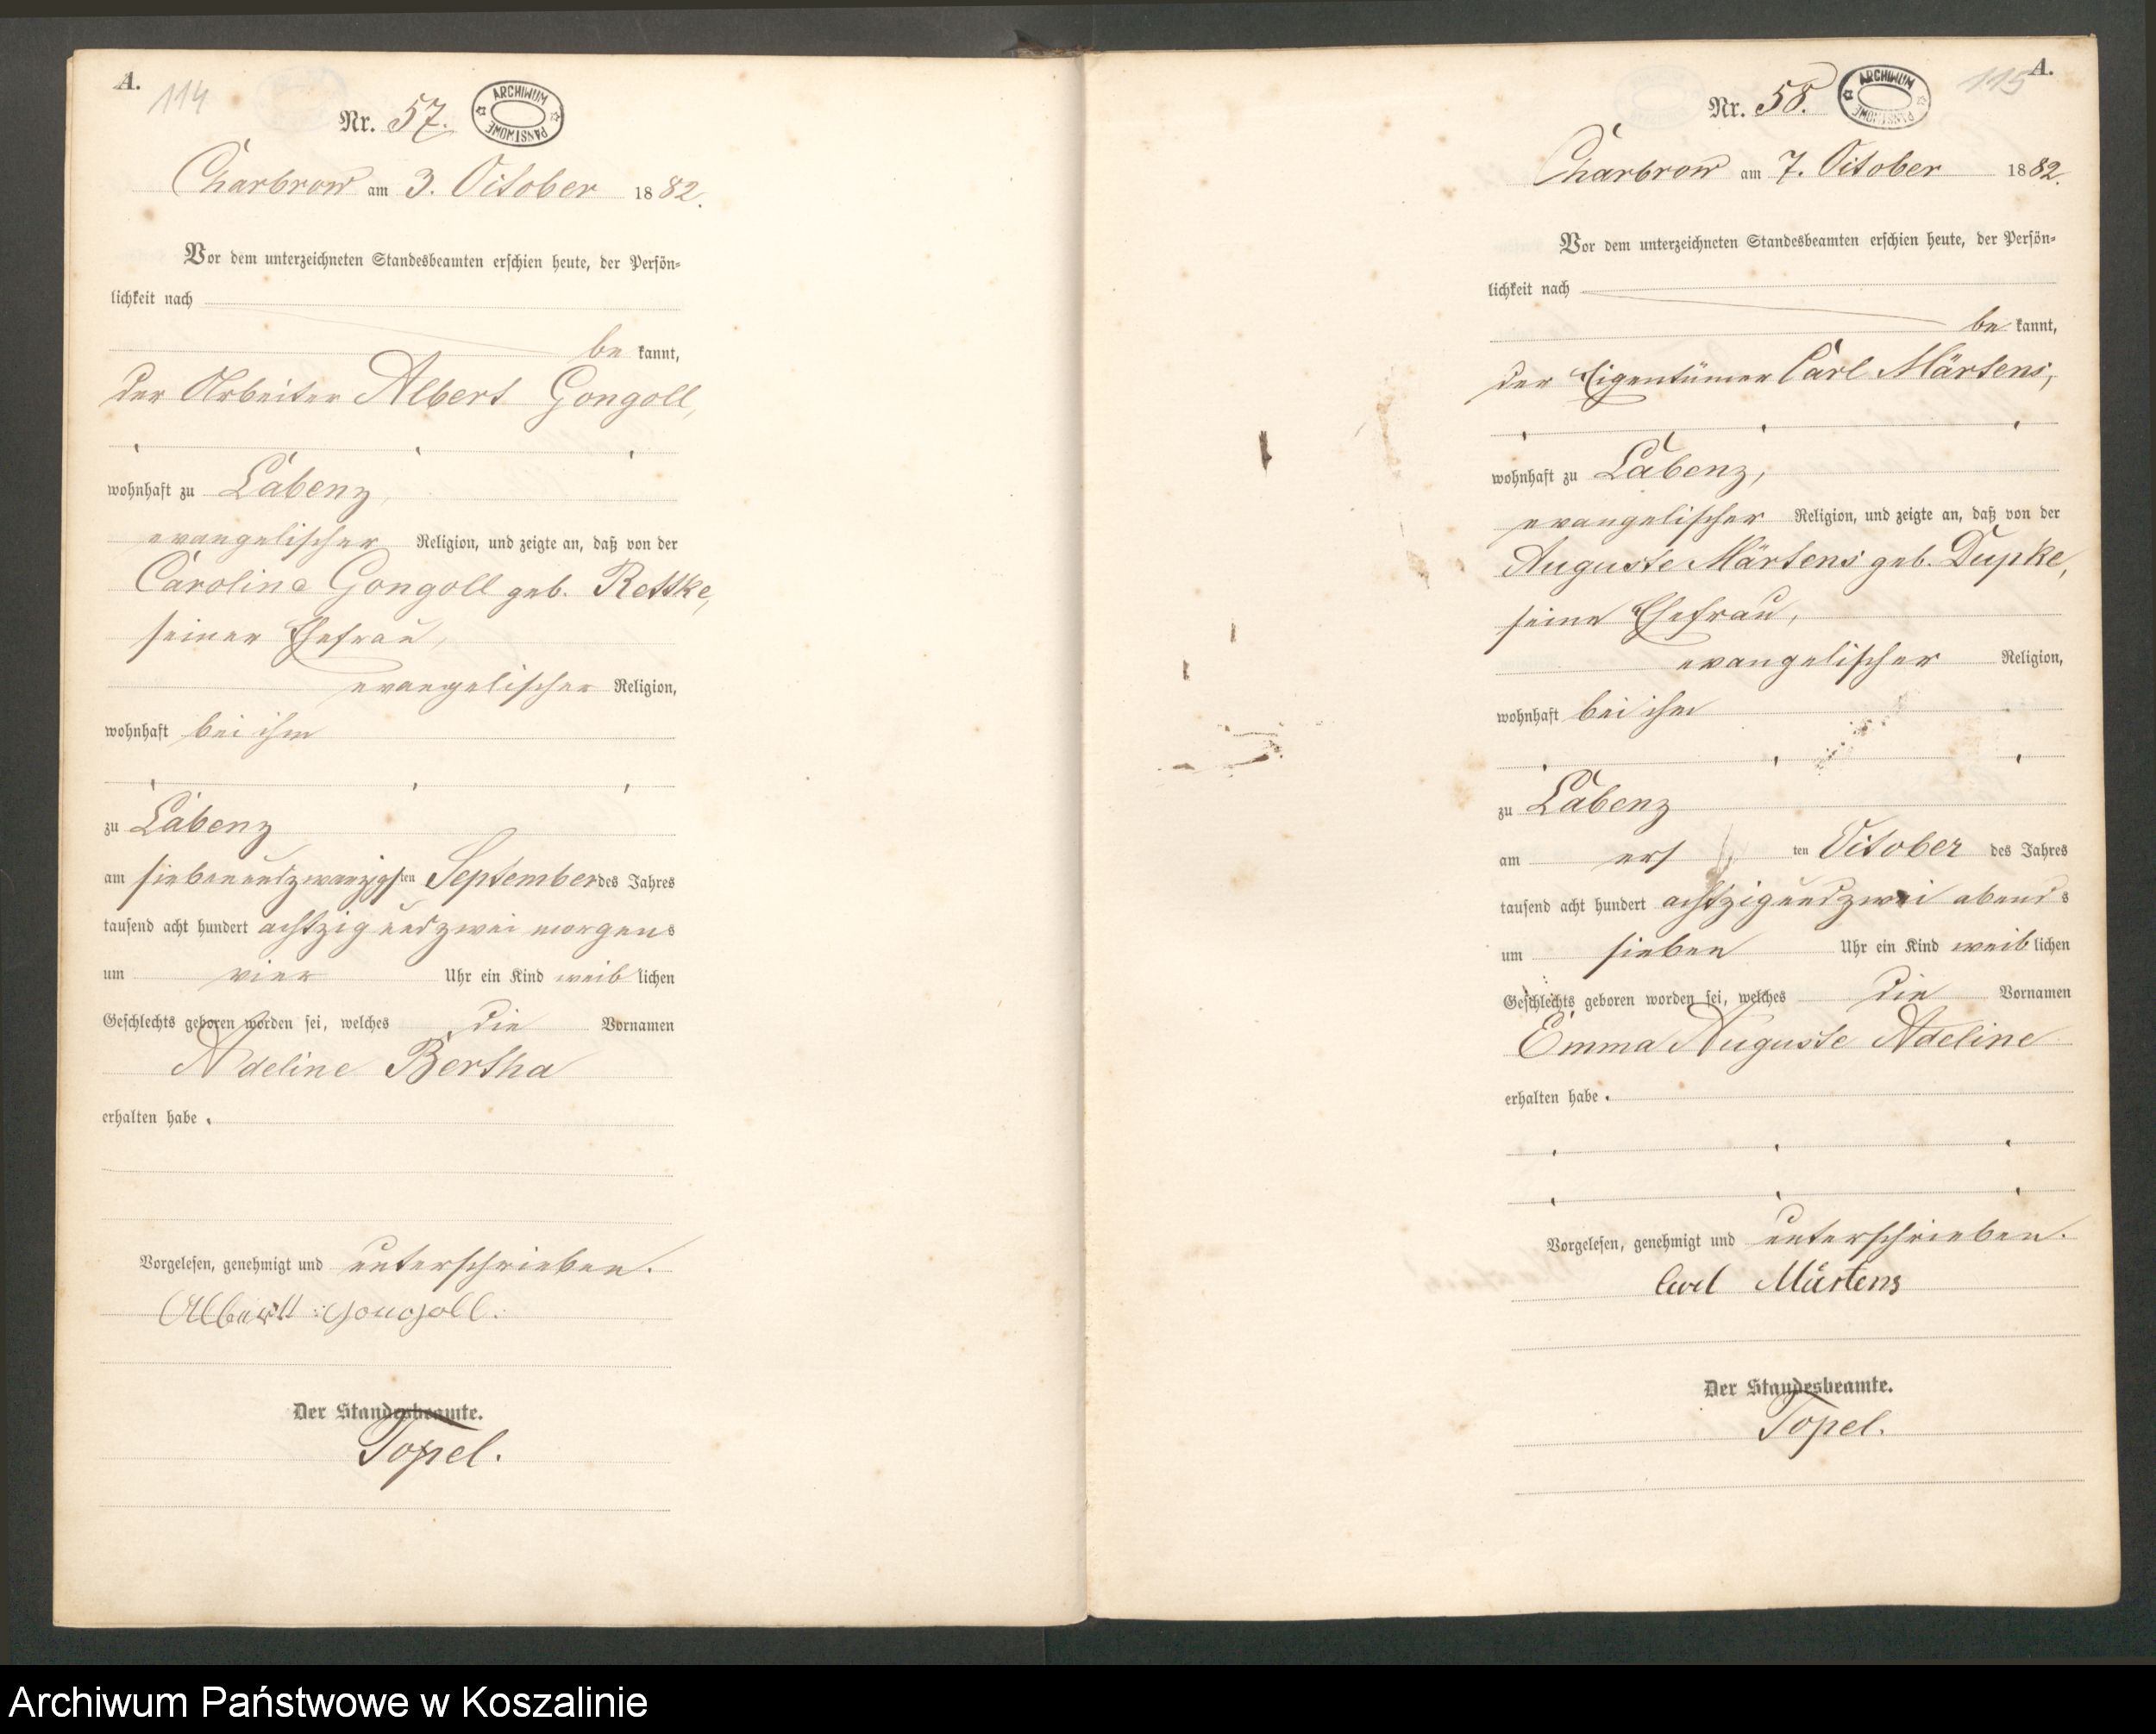 A.
114
Nr. 57.
ARCHIWUM PAŃSTWOWE
Charbrow am 3. October 1882.
Vor dem unterzeichneten Standesbeamten erschien heute, der Persön=
lichkeit nach
be kannt,
der Arbeiter Albert Gongoll,
wohnhaft zu Labenz,
evangelischer Religion, und zeigte an, daß von der
Caroline Gongoll geb. Rettke,
seiner Ehefrau,
evangelischer Religion,
wohnhaft bei ihm
zu Labenz
am siebenundzwanzigsten September des Jahres
tausend acht hundert achtzig und zwei morgens
um vier Uhr ein Kind weiblichen
Geschlechts geboren worden sei, welches die Vornamen
Adeline Bertha
erhalten habe.
Vorgelesen, genehmigt und unterschrieben.
Albert Gongoll.
Der Standesbeamte.
Topel.
A.
115
Nr. 58.
ARCHIWUM PAŃSTWOWE
Charbrow am 7. October 1882.
Vor dem unterzeichneten Standesbeamten erschien heute, der Persön=
lichkeit nach
be kannt,
der Eigentümer Carl Märtens,
wohnhaft zu Labenz,
evangelischer Religion, und zeigte an, daß von der
Auguste Märtens geb. Dupke,
seine Ehefrau,
evangelischer Religion,
wohnhaft bei ihm
zu Labenz
am ersten October des Jahres
tausend acht hundert achtzig und zwei abends
um sieben Uhr ein Kind weiblichen
Geschlechts geboren worden sei, welches die Vornamen
Emma Auguste Adeline
erhalten habe.
Vorgelesen, genehmigt und unterschrieben.
Carl Märtens
Der Standesbeamte.
Topel.
Archiwum Państwowe w Koszalinie